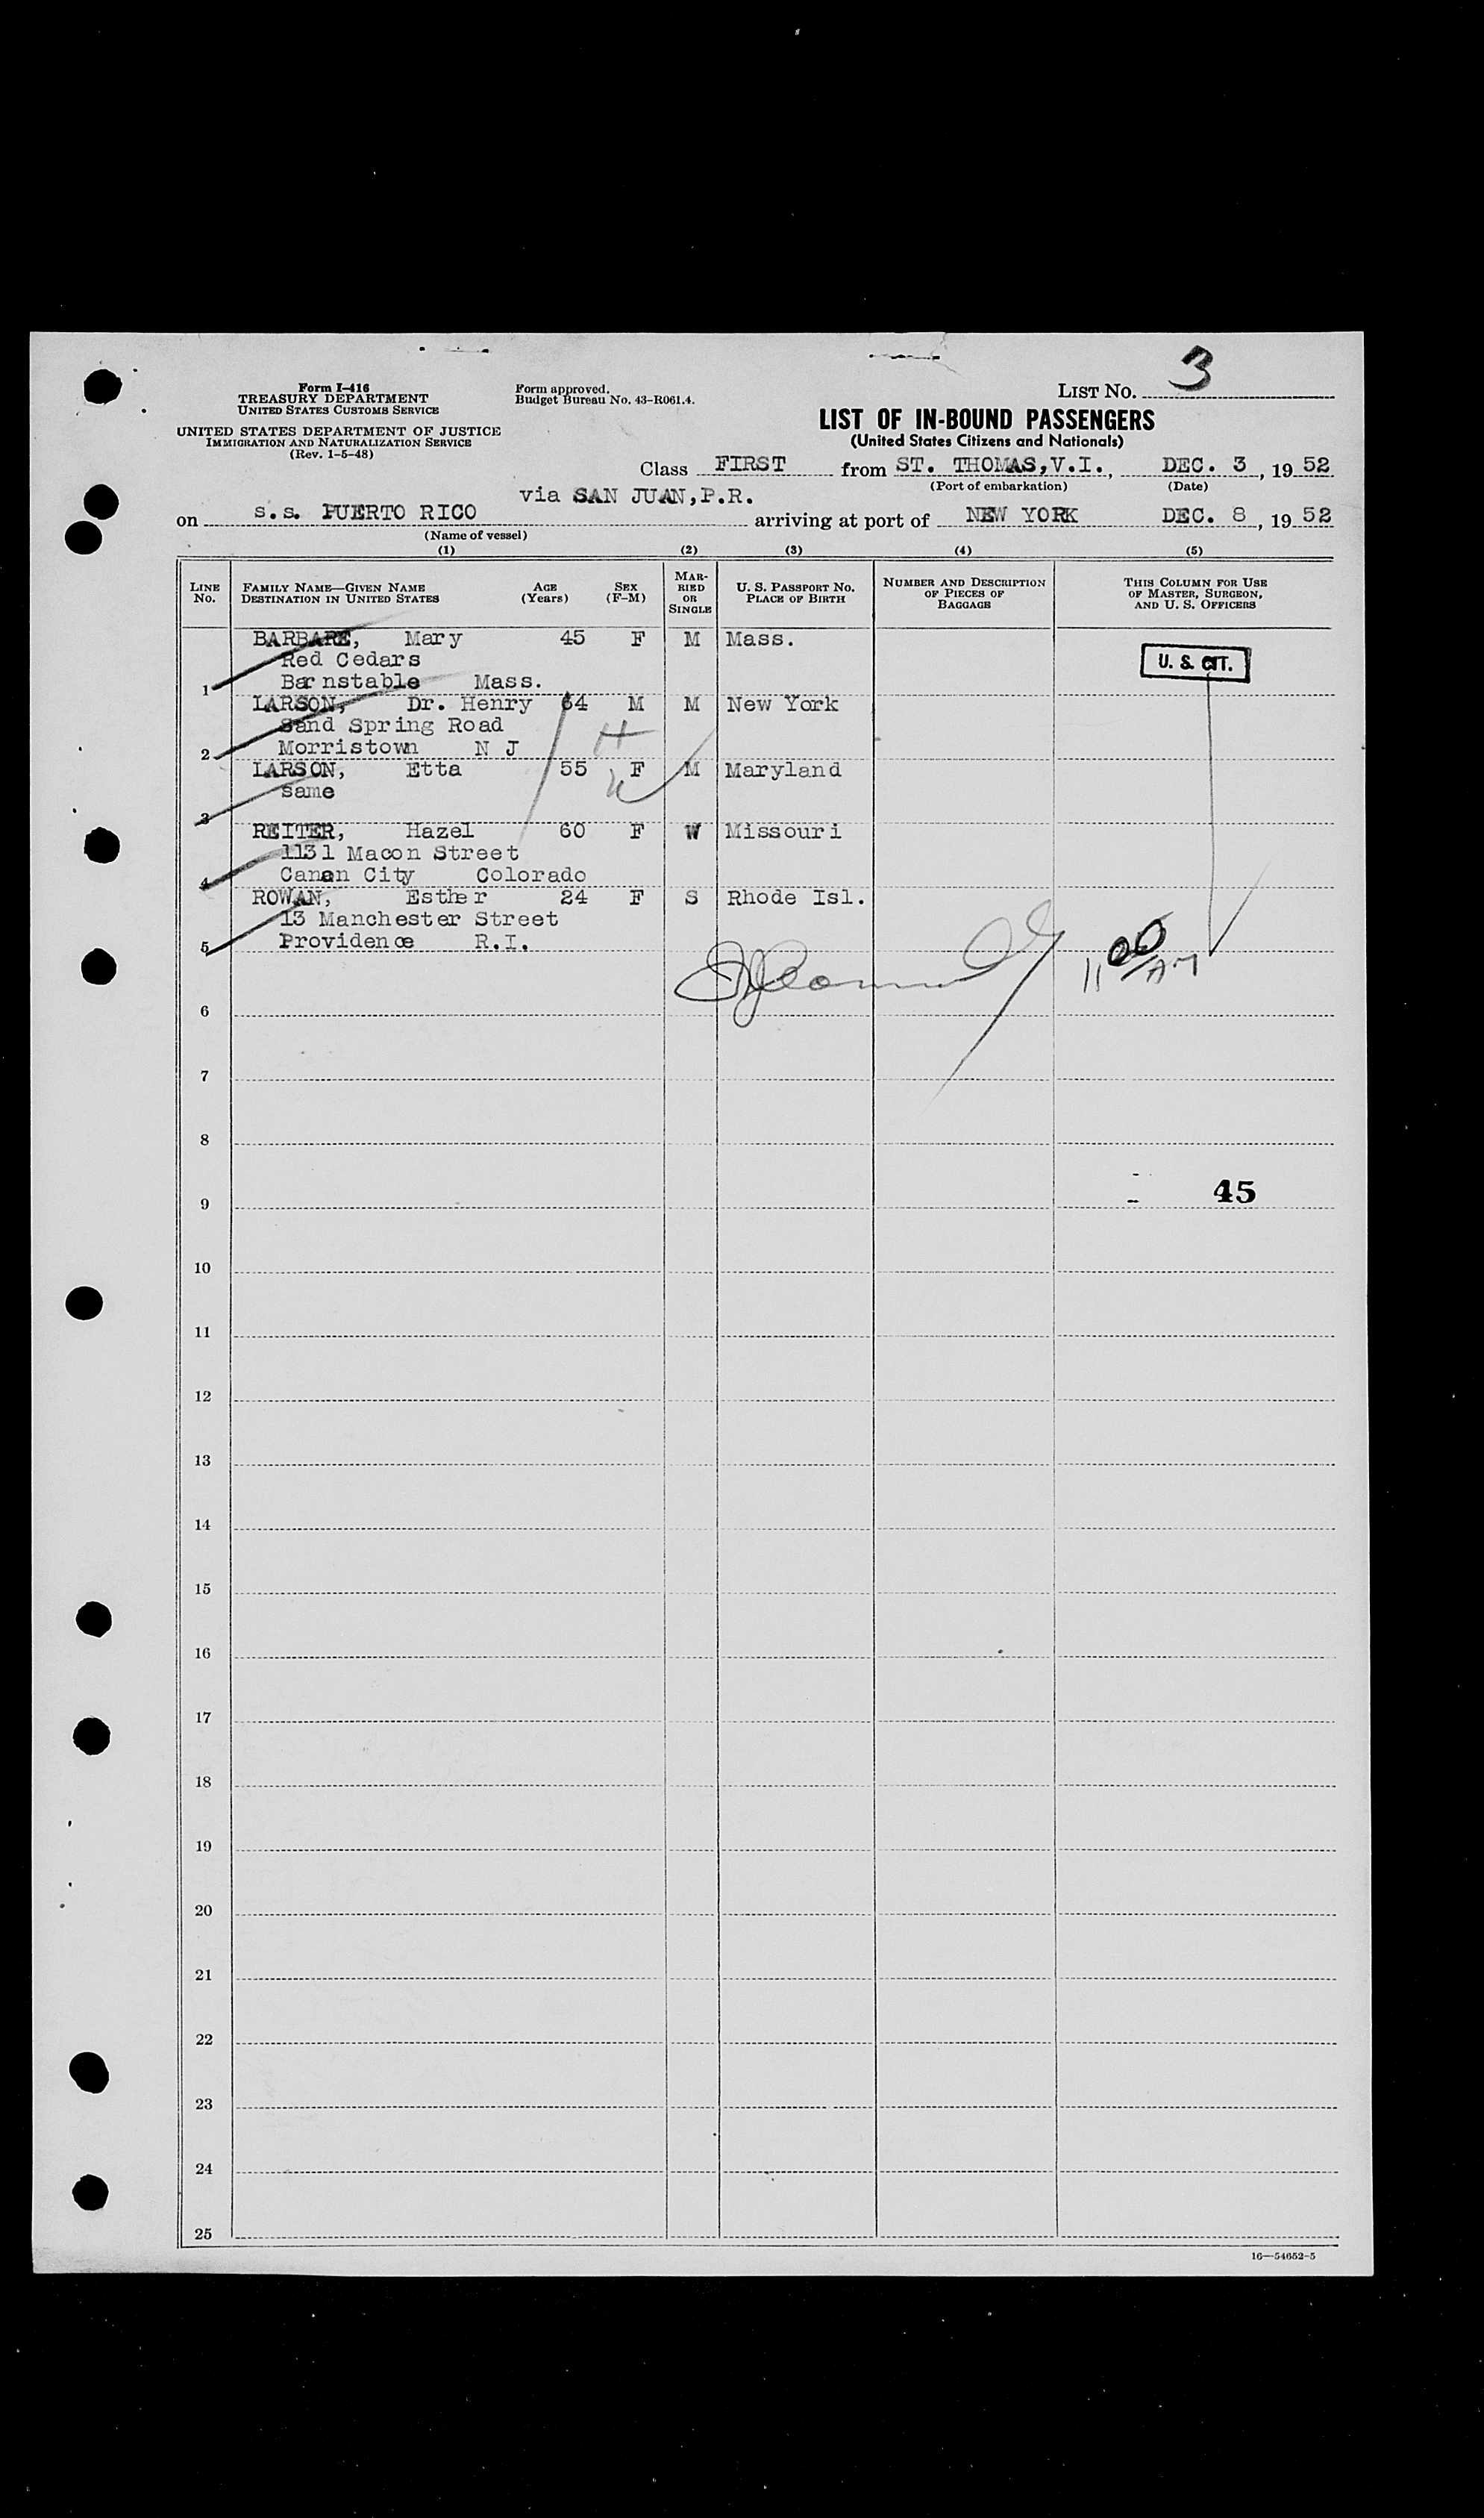 Form I-416
TREASURY DEPARTMENT
UNITED STATES CUSTOMS SERVICE
UNITED STATES DEPARTMENT OF JUSTICE
IMMIGRATION AND NATURALIZATION SERVICE
(Rev. 1-5-48)
Form approved.
Budget Bureau No. 43-R061.4.
LIST No. 3
LIST OF IN-BOUND PASSENGERS
(United States Citizens and Nationals)
Class FIRST from ST. THOMAS,V.I., DEC. 3, 1952
(Port of embarkation) (Date)
via SAN JUAN,P.R.
on s.s. PUERTO RICO arriving at port of NEW YORK DEC. 8, 1952
(Name of vessel)
(1) (2) (3) (4) (5)
LINE No. FAMILY NAME—GIVEN NAME DESTINATION IN UNITED STATES AGE (Years) SEX (F-M) MARRIED OR SINGLE U. S. PASSPORT No. PLACE OF BIRTH NUMBER AND DESCRIPTION OF PIECES OF BAGGAGE THIS COLUMN FOR USE OF MASTER, SURGEON, AND U. S. OFFICERS
BARBARE, Mary 45 F M Mass.
Red Cedars U. S. CIT.
1 Barnstable Mass.
LARSON, Dr. Henry 64 M M New York
Sand Spring Road H
2 Morristown N J
LARSON, Etta 55 F M Maryland
same W
3
REITER, Hazel 60 F W Missouri
1131 Macon Street
4 Canen City Colorado
ROWAN, Esther 24 F S Rhode Isl.
13 Manchester Street
5 Providence R.I. 11 00 AM
6
7
8
9 45
10
11
12
13
14
15
16
17
18
19
20
21
22
23
24
25
16—54652-5